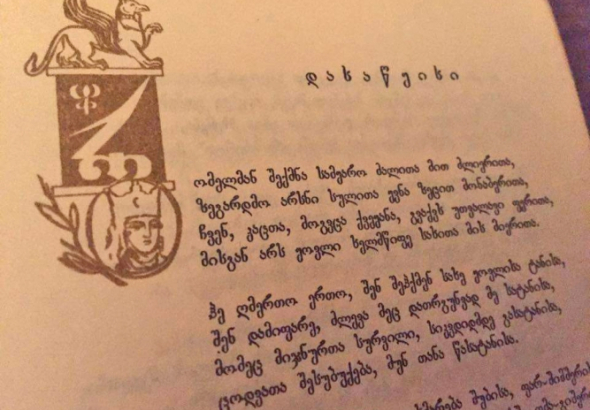 დასაწყისი
ომელმან შექმნა სამყარო ძალითა მით ძლიერითა,
ზეგარდმო არსნი სულითა ყვნა ზეცით მონაბერითა,
ჩვენ, კაცთა, მოგვცა ქვეყანა, გვაქვს უთვალავი ფერითა,
მისგან არს ყოვლი ხელმწიფე სახითა მის მიერითა.
ჰე ღმერთო ერთო, შენ შეჰქმენ სახე ყოვლისა ტანისა,
შენ დამიფარე, ძლევა მეც დათრგუნვად მე სატანისა,
მომეც მიჯნურთა სურვილი, სიკვდიდმდე გასატანისა,
ცოდვათა შესუბუქება, მუნ თანა წასატანისა.
შუბისა,